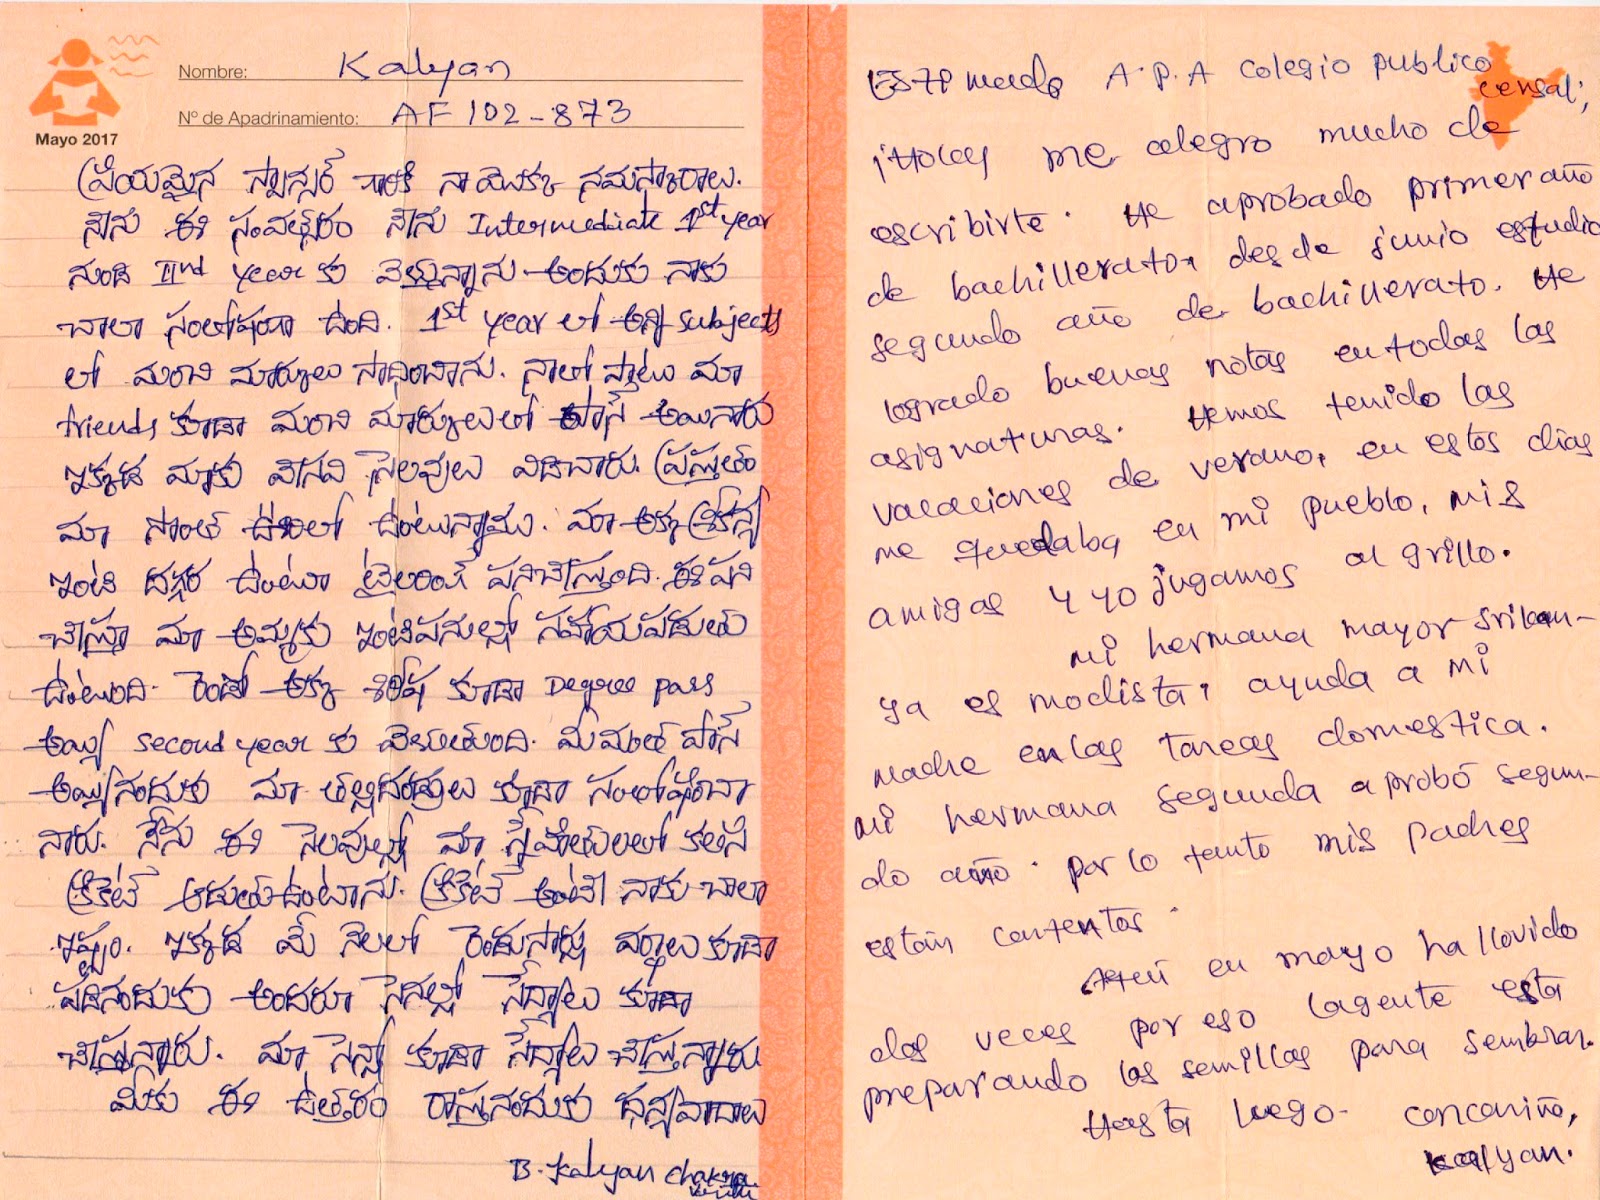 Nombre: Kalyan
Nº de Apadrinamiento: AF 102-873
Mayo 2017
ప్రియమైన స్పాన్సర్ గారికి నా యొక్క నమస్కారాలు.
నేను ఈ సంవత్సరం నేను Intermediate 1st year
నుండి IInd year కు వెళ్తున్నాను అందుకు నాకు
చాలా సంతోషంగా ఉంది. 1st year లో అన్ని subjects
లో మంచి మార్కులు సాధించాను. నాతో పాటు మా
friends కూడా మంచి మార్కులతో పాస్ అయినారు
ఇక్కడ మాకు వేసవి సెలవులు విడిచారు. ప్రస్తుతం
మా సొంత ఊరిలో ఉంటున్నాము. మా అక్క
ఇంటి దగ్గర ఉంటూ టైలరింగ్ పనిచేస్తుంది. ఈ పని
చేస్తూ మా అమ్మకు ఇంటిపనుల్లో సహాయపడుతు
ఉంటుంది. రెండో అక్క శిరీష కూడా Degree pass
అయ్యి second year కు వెళుతుంది. మేమంత పాస్
అయ్యినందుకు మా తల్లిదండ్రులు కూడా సంతోషించా
నారు. నేను ఈ సెలవుల్లో మా స్నేహితులతో కలిసి
క్రికెట్ ఆడుతుఉంటాను. క్రికెట్ అంటే నాకు చాలా
ఇష్టం. ఇక్కడ మే నెలలో రెండుసార్లు వర్షాలు కూడా
పడినందుకు అందరూ సేనల్లో సేద్యాలు కూడా
చేస్తున్నారు. మా సేన్లో కూడా సేద్యాలు చేస్తున్నారు
మీకు ఈ ఉత్తరం రాస్తునందుకు ధన్యవాదాలు
B. Kalyan
Estimado A.P.A colegio publico
censal;
¡Hola! me alegro mucho de
escribirte. He aprobado primer año
de bachillerato, desde junio estudio
segundo año de bachillerato. He
logrado buenas notas en todas las
asignaturas. Hemos tenido las
vacaciones de verano, en estos dias
me quedaba en mi pueblo, mis
amigas y yo jugamos al grillo.
Mi hermana mayor Srivan-
ya es modista, ayuda a mi
madre en las tareas domestica.
Mi hermana segunda aprobó segun-
do año. por lo tanto mis padres
estan contentos.
Aqui en mayo ha llovido
dos veces por eso la gente esta
preparando las semillas para sembrar.
Hasta luego. con cariño,
Kalyan.